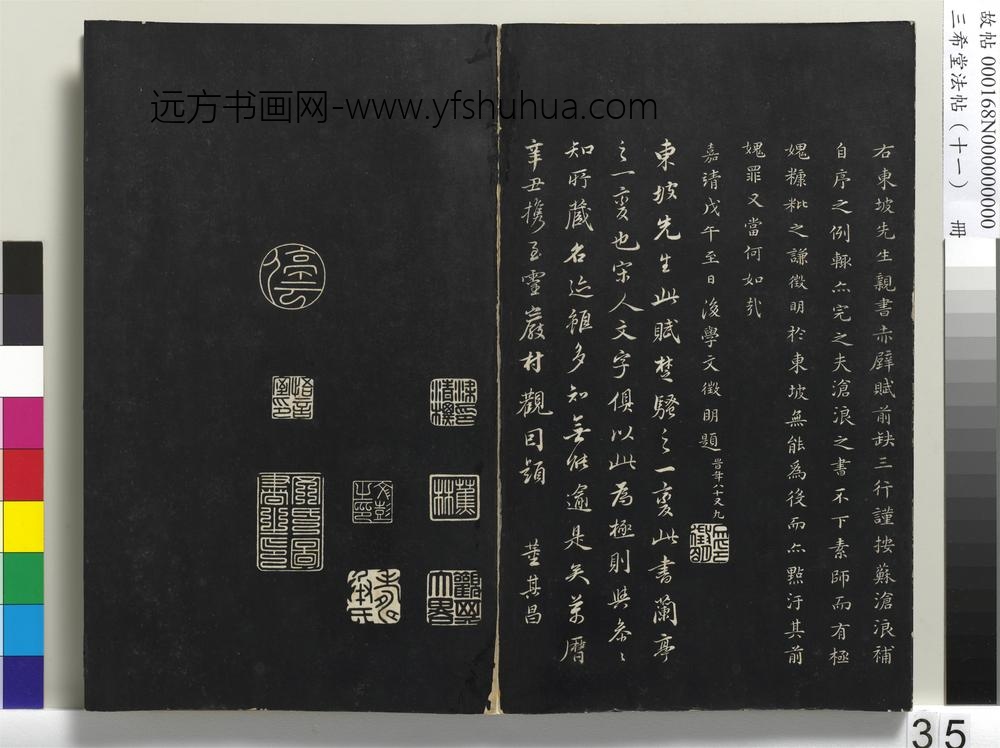 右東坡先生親書赤壁賦前缺三行謹按蘇滄浪補
自序之例輒亦完之夫滄浪之書不下素師而有極
媿糠粃之謙徵明於東坡無能為役而亦點汙其前
媿罪又當何如哉
嘉靖戊午至日後學文徵明題 岂年八十又九
東坡先生此賦楚騷之一變此書蘭亭
之一變也宋人文字俱以此為極則與參參
知所藏名迹雖多知無能逾是矣萬曆
辛丑攜至靈巖村觀因題 董其昌
文彭之印
蕉林
远方书画网-www.yfshuhua.com
故帖 000168N000000000
三希堂法帖（十一） 冊
35